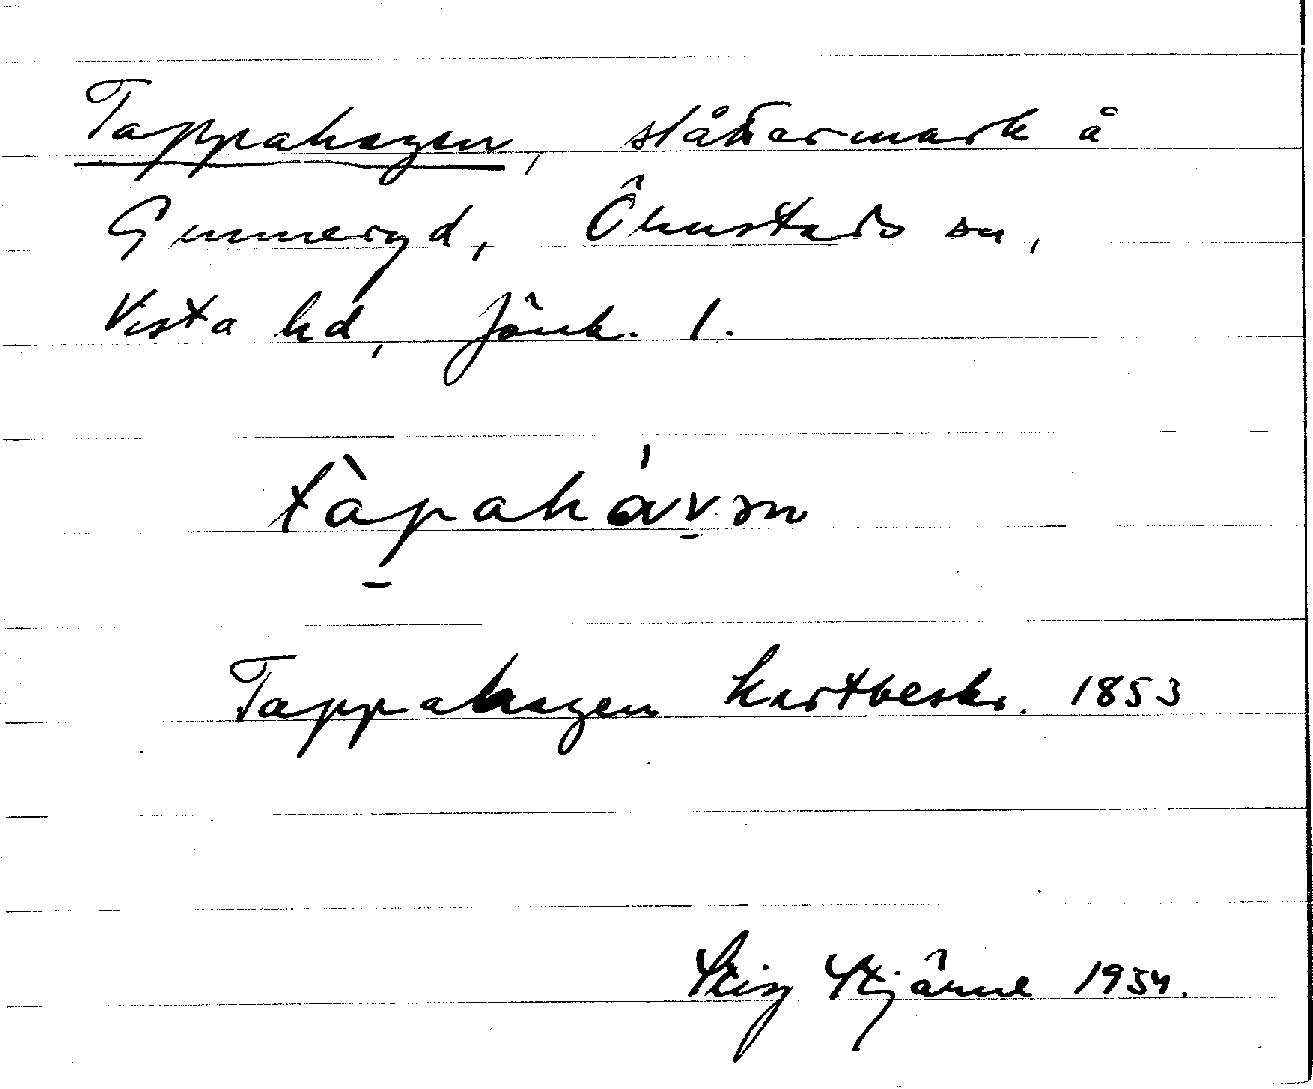 Tappahagen, slåttermark å
Gunneryd, Ölmstads sn,
Vista hd, Jönk. l.
tàpahávən
Tappahagen kartbeskr. 1853
Stig Stjärne 1934.